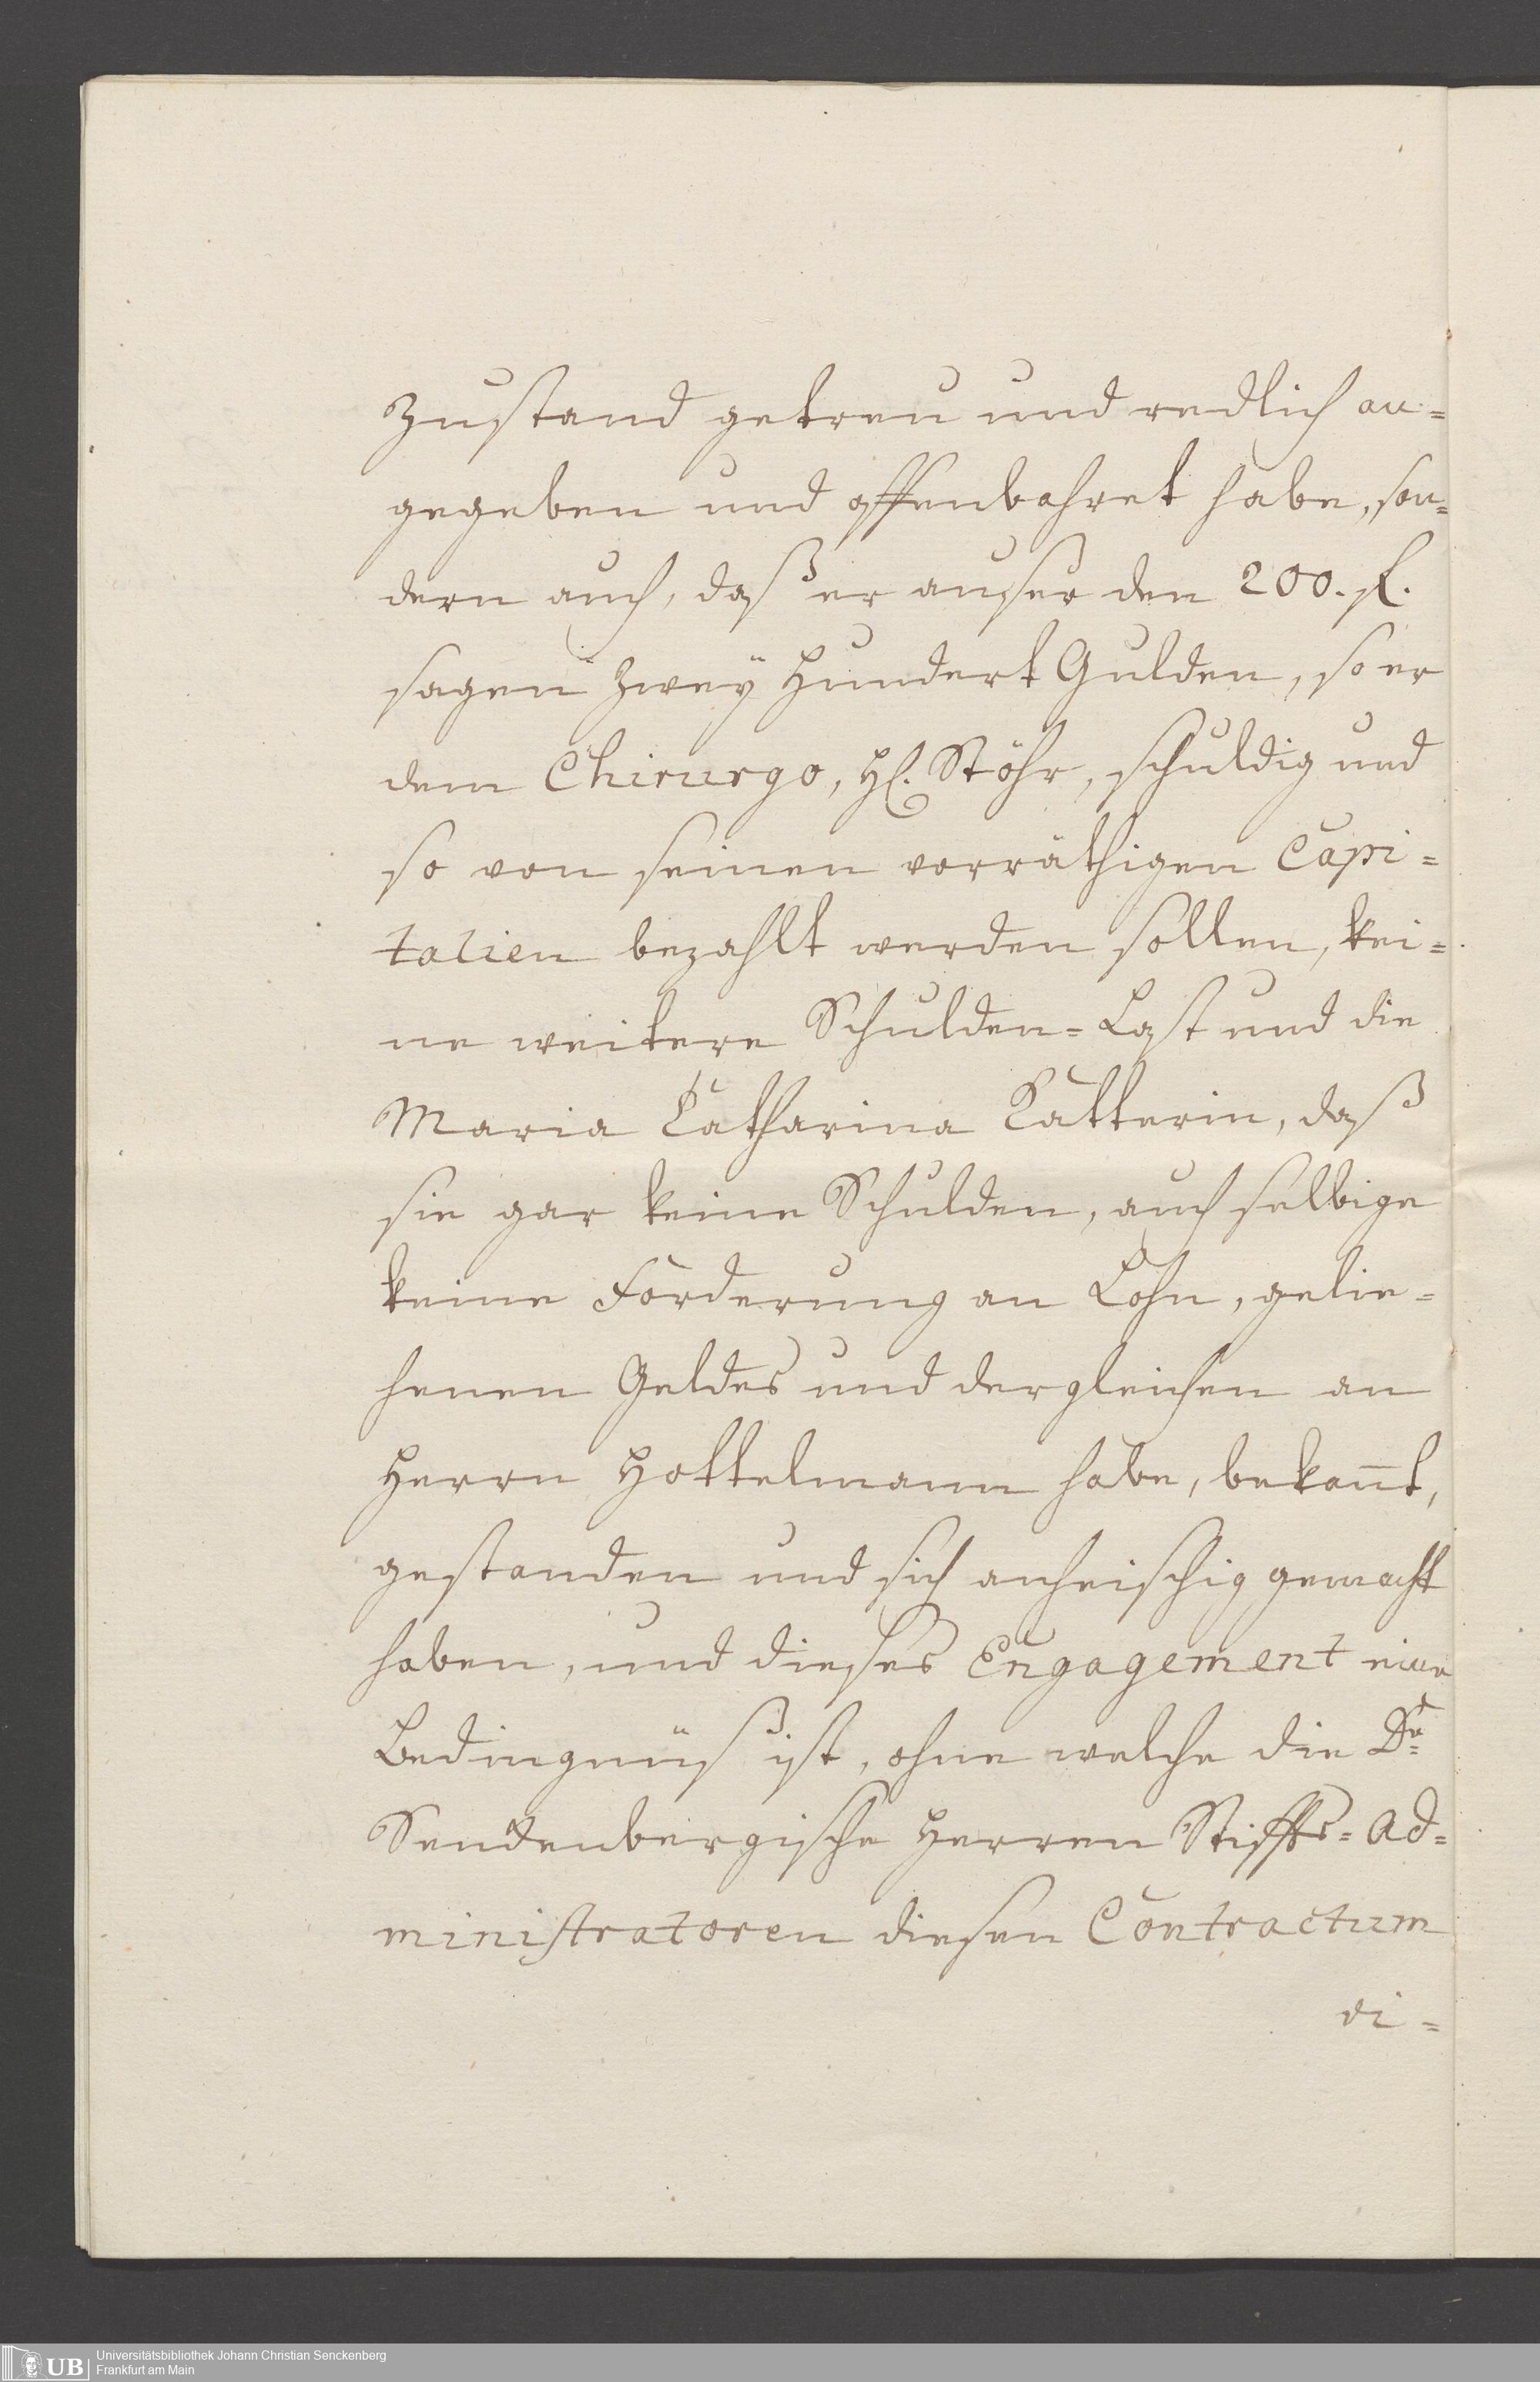 Zustand getreu und redlich an=
gegeben und offenbahret habe, son=
dern auch, daß er auser den 200. fl.
sagen zweÿ Hundert Gulden, so er
dem Chirurgo, H. Stöhr, schuldig und
so von seinen vorräthigen Capi=
talien bezahlt werden sollen, kei=
ne weitere Schulden=Last und die
Maria Catharina Katterin, daß
sie gar keine Schulden, auch selbige
keine Forderung an Lohn, gelie=
henen Geldes und dergleichen an
Herrn Hottelmann habe, bekañt,
gestanden und sich anheischig gemacht
haben, und dieses Engagement eine
Bedingnüß ist, ohne welche die Dr
Senckenbergische Herren Stiffts=Ad=
ministratoren diesen Contractum
vi=
UB Universitätsbibliothek Johann Christian Senckenberg
Frankfurt am Main